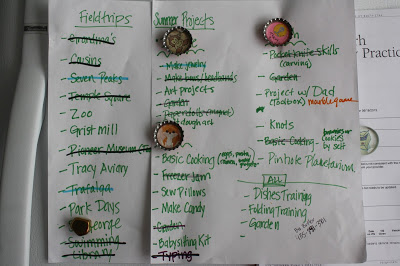 Fieldtrips
Grandma's
Cousins
Seven Peaks
Temple Square
Zoo
Grist mill
Pioneer Museum
Tracy Aviary
Trafalga
Park Days
George
Swimming
Library
Summer Projects
Make jewelry
Make bows/headbands
Art projects
Garden
dough art
Basic Cooking
Freezer Jam
Sew Pillows
Make Candy
Garden
Babysitting Kit
Typing
Pocket knife skills
(carving)
Garden
Project w/ Dad
(toolbox) marble game
Knots
Basic Cooking
brownies or
cookies
by self
Pinhole Planetarium
ALL
Dishes Training
Folding Training
Garden
Practic